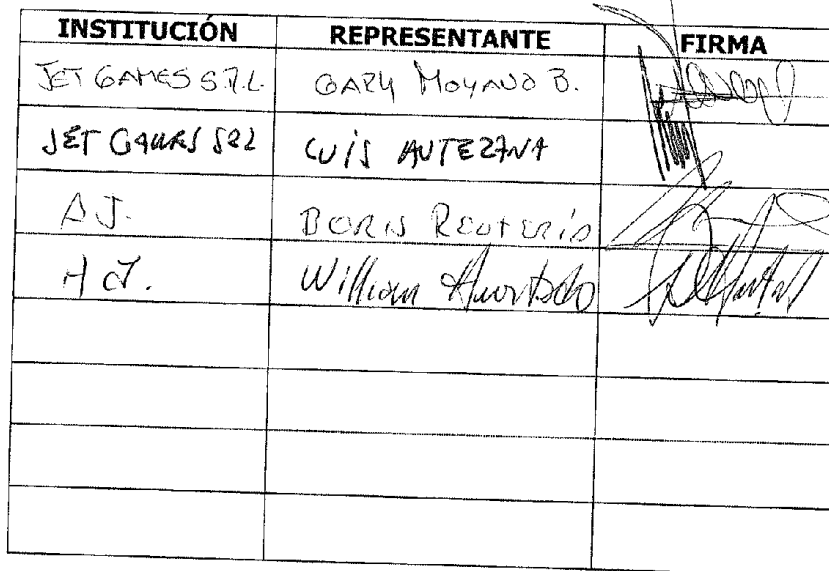 INSTITUCIÓN REPRESENTANTE FIRMA
JET GAMES S.R.L. GARY MOYANO B.
JET GAMES SRL LUIS ANTEZANA
A J. BORIS
A J. William Hurtado